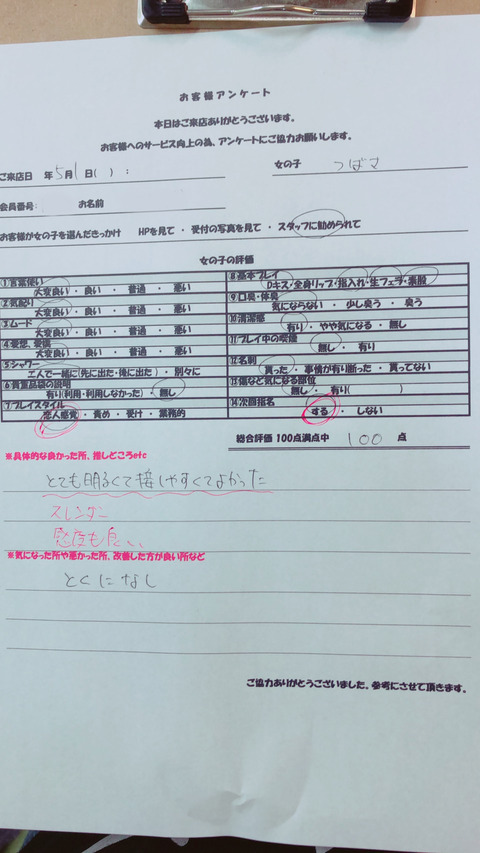 お客様アンケート
本日はご来店ありがとうございます。
お客様へのサービス向上の為、アンケートにご協力お願いします。
ご来店日 年 5月 1日( ) :
女の子 つばさ
会員番号: お名前
お客様が女の子を選んだきっかけ HPを見て ・ 受付の写真を見て ・ スタッフに勧められて
女の子の評価
①言葉使い
大変良い ・ 良い ・ 普通 ・ 悪い
②気配り
大変良い ・ 良い ・ 普通 ・ 悪い
③ムード
大変良い ・ 良い ・ 普通 ・ 悪い
④愛想、愛嬌
大変良い ・ 良い ・ 普通 ・ 悪い
⑤シャワー
二人で一緒に(先に出た・後に出た) ・ 別々に
⑥貴重品袋の説明
有り(利用・利用しなかった) ・ 無し
⑦プレイスタイル
恋人感覚 ・ 責め ・ 受け ・ 業務的
⑧基本プレイ
Dキス・全身リップ・指入れ・生フェラ・素股
⑨口臭・体臭
気にならない ・ 少し臭う ・ 臭う
⑩清潔感
有り ・ やや気になる ・ 無し
⑪プレイ中の喫煙
無し ・ 有り
⑫名刺
貰った ・ 事情が有り断った ・ 貰ってない
⑬傷など気になる部位
無し ・ 有り( )
⑭次回指名
する ・ しない
総合評価 100点満点中 100 点
※具体的な良かった所、推しどころetc
とても明るくて接しやすくてよかった
スレンダー
感度も良い、
※気になった所や悪かった所、改善した方が良い所など
とくになし
ご協力ありがとうございました。参考にさせて頂きます。